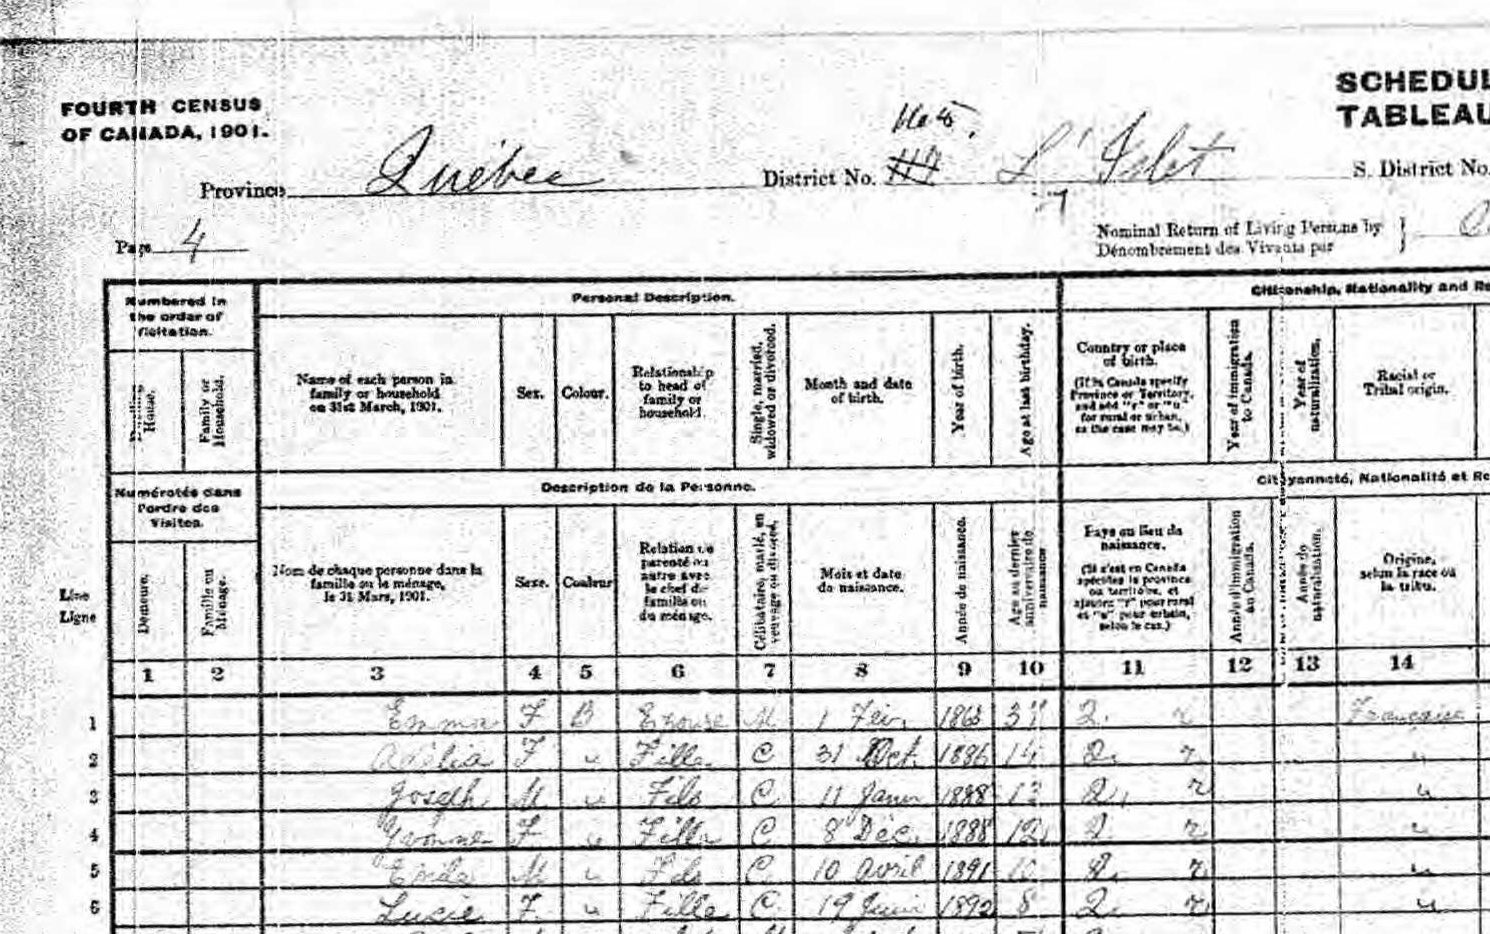 SCHEDUL
TABLEAU
FOURTH CENSUS
OF CANADA, 1901.
Province Québec District No. L'Islet S. District No.
Page 4
Nominal Return of Living Persons by
Dénombrement des Vivants par
Numbered in the order of Visitation.
Personal Description.
Citizenship, Nationality and Re
Dwelling House.
Family or Household.
Name of each person in family or household on 31st March, 1901.
Sex.
Colour.
Relationship to head of family or household.
Single, married, widowed or divorced.
Month and date of birth.
Year of birth.
Age at last birthday.
Country or place of birth.
(If in Canada specify Province or Territory, and add "r" or "u" for rural or urban, as the case may be.)
Year of immigration to Canada.
Year of naturalization.
Racial or Tribal origin.
Numérotés dans l'ordre des Visites.
Description de la Personne.
Citoyenneté, Nationalité et Re
Line
Ligne
Demeure.
Famille ou Ménage.
Nom de chaque personne dans la famille ou le ménage, le 31 Mars, 1901.
Sexe.
Couleur
Relation de parenté ou autre avec le chef de famille ou du ménage.
Célibataire, marié, en veuvage ou divorcé.
Mois et date de naissance.
Année de naissance.
Age au dernier anniversaire de naissance
Pays ou lieu de naissance.
(Si c'est en Canada spécifiez la province ou territoire, et ajoutez "r" pour rural et "u" pour urbain, selon le cas.)
Année d'immigration au Canada.
Année de naturalisation.
Origine, selon la race ou la tribu.
1 2 3 4 5 6 7 8 9 10 11 12 13 14
1 Emma F B Epouse M 1 Fév. 37 2. r Française
2 F " Fille C 31 Oct. 1886 14 2. r "
3 Joseph M " Fils C 11 Janv 1888 13 2. r "
4 Yvonne F " Fille C 8 Déc. 1888 12 2. r "
5 Emile M " Fils C 10 avril 1891 2. r "
6 Lucie F. " Fille C 19 Juin 1892 8 2. r "